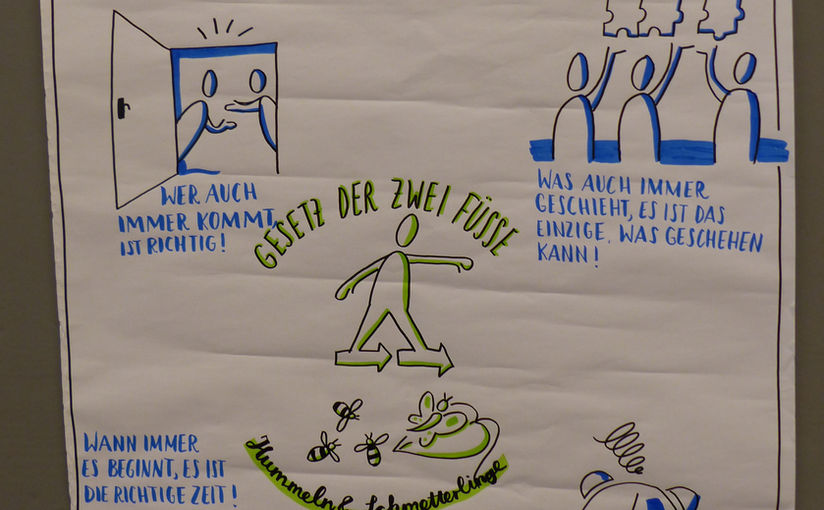 WER AUCH
IMMER KOMMT,
IST RICHTIG!
WAS AUCH IMMER
GESCHIEHT, ES IST DAS
EINZIGE, WAS GESCHEHEN
KANN!
GESETZ DER ZWEI FÜSSE
WANN IMMER
ES BEGINNT, ES IST
DIE RICHTIGE ZEIT!
Hummeln & Schmetterlinge